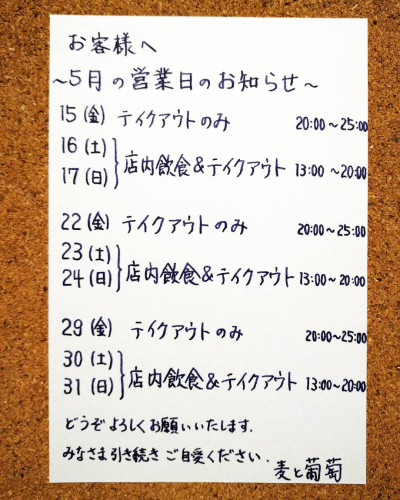 お客様へ
～5月の営業日のお知らせ～
15(金) テイクアウトのみ 20:00～25:00
16(土)
17(日) }店内飲食&テイクアウト 13:00～20:00
22(金) テイクアウトのみ 20:00～25:00
23(土)
24(日) }店内飲食&テイクアウト 13:00～20:00
29(金) テイクアウトのみ 20:00～25:00
30(土)
31(日) }店内飲食&テイクアウト 13:00～20:00
どうぞよろしくお願いいたします.
みなさま引き続きご自愛ください.
麦と葡萄